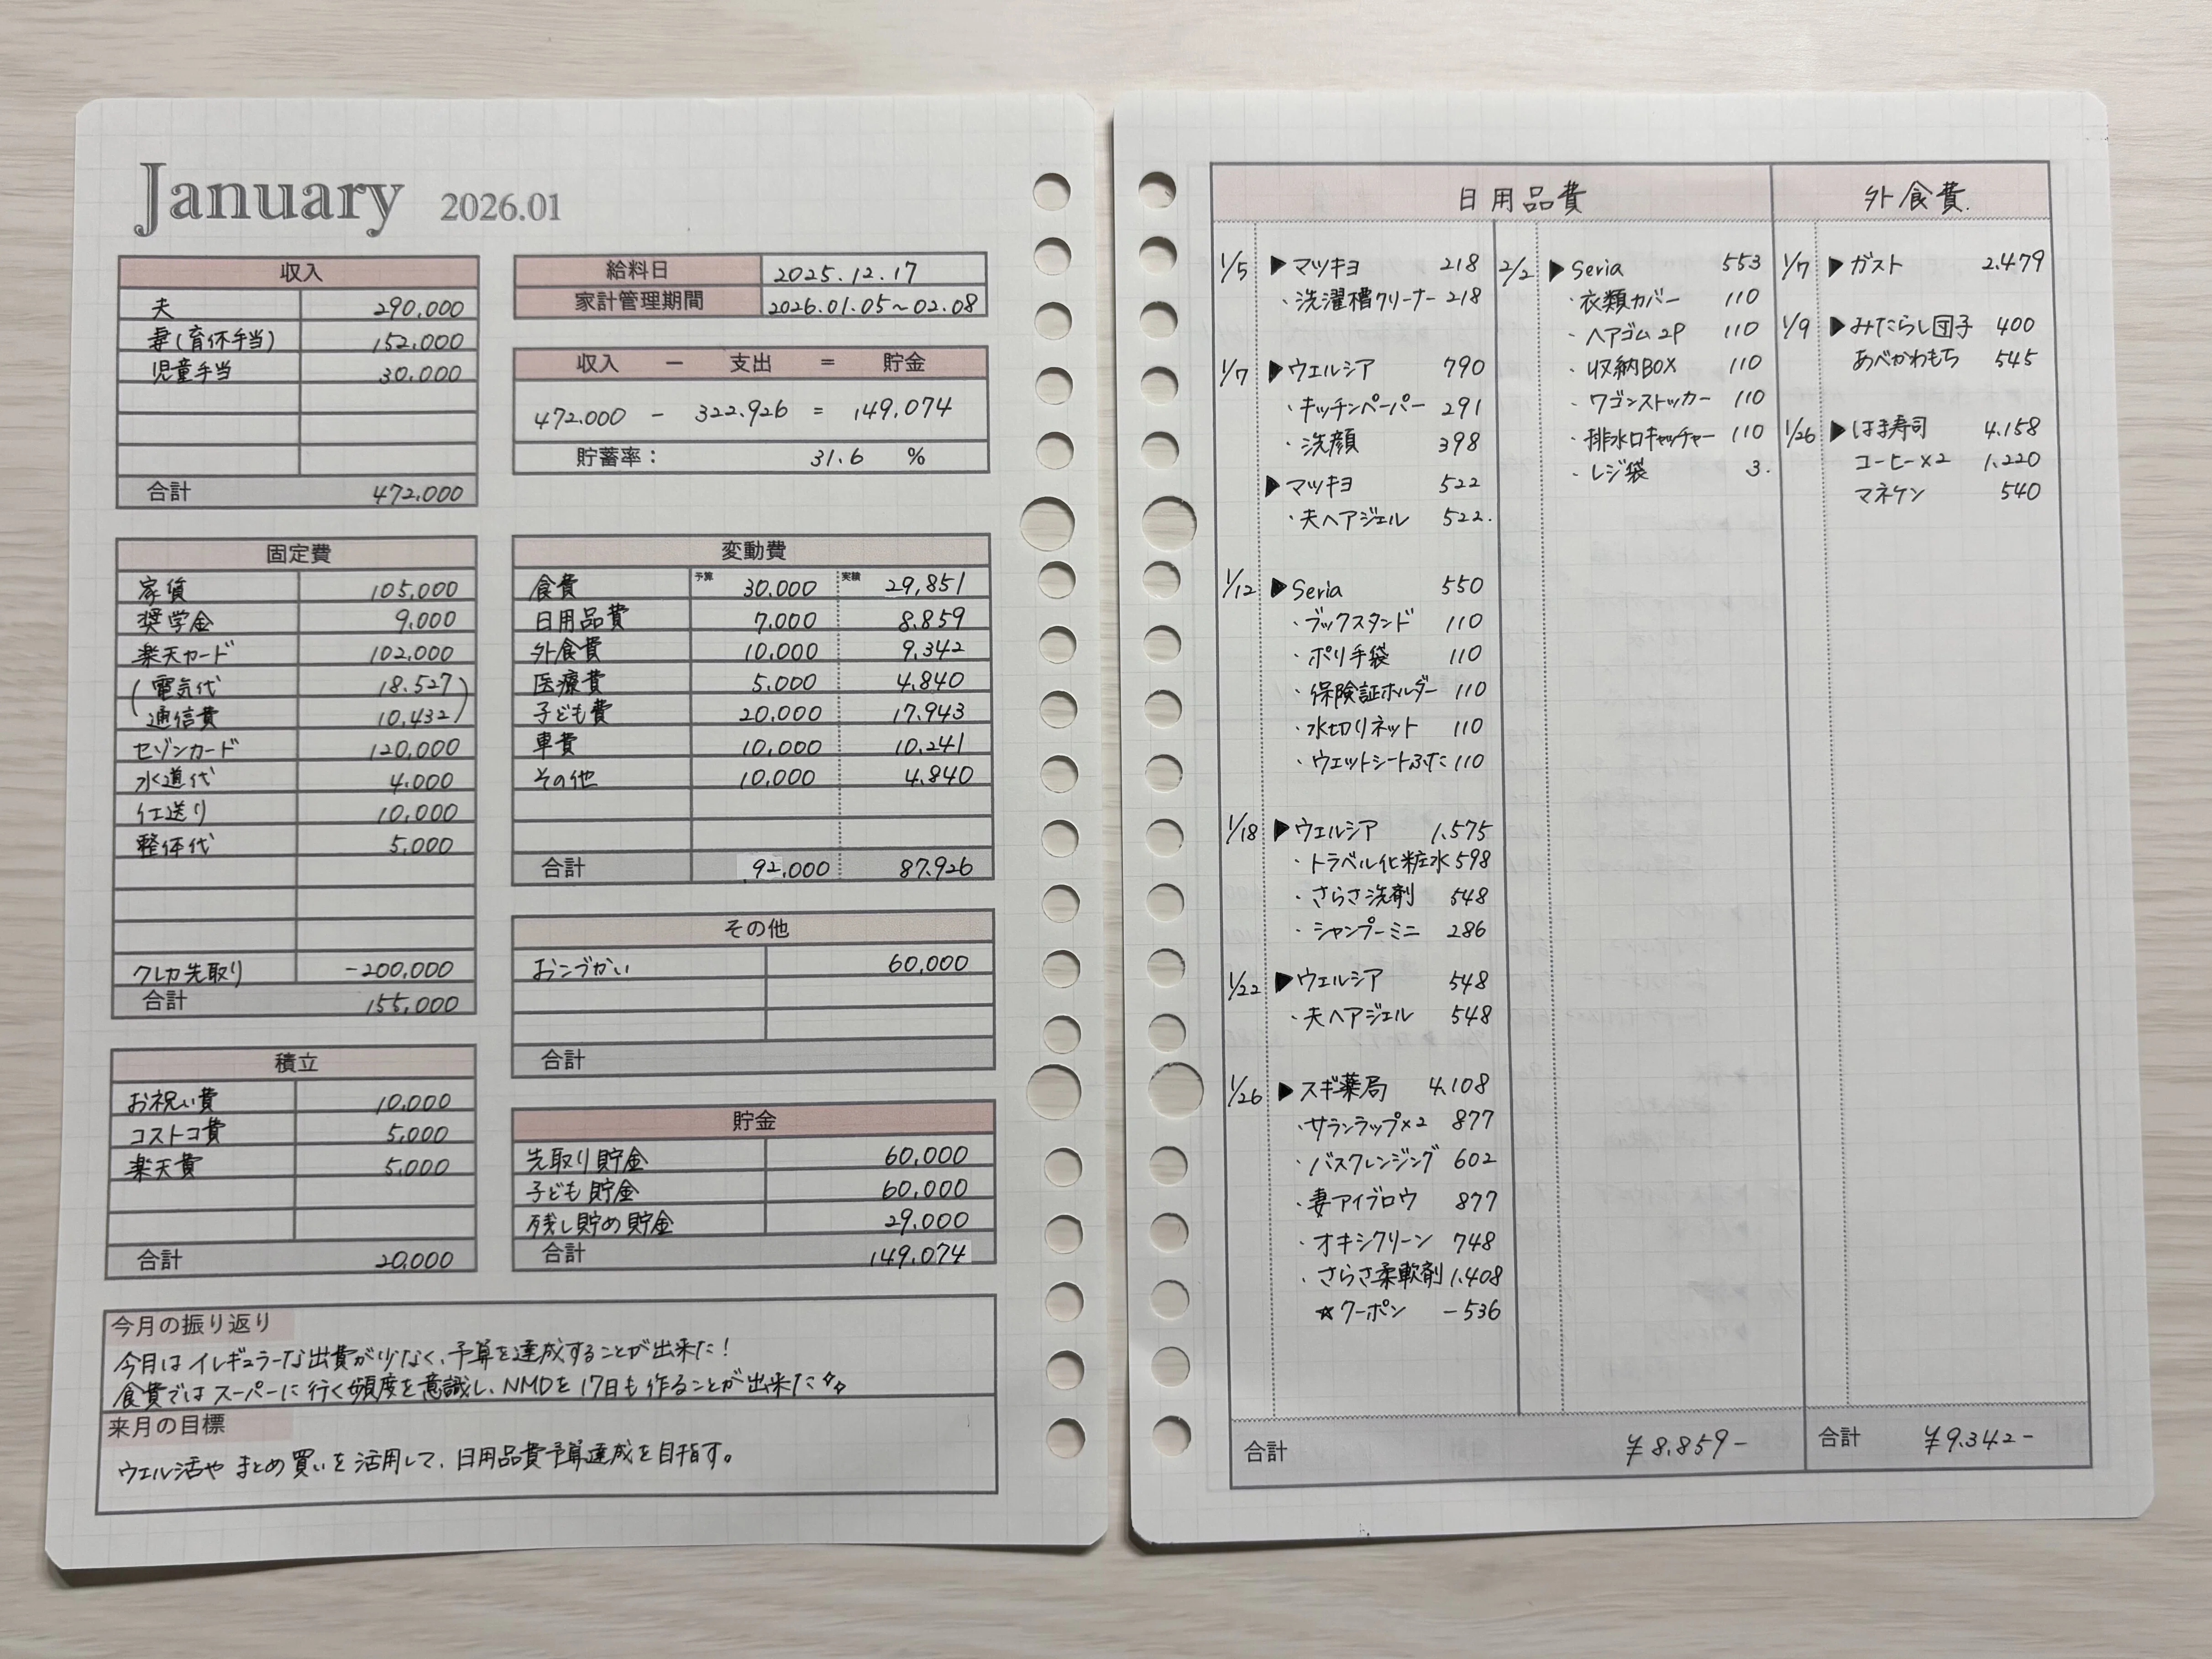 January 2026.01
収入
夫 290,000
妻(育休手当) 152,000
児童手当 30,000
合計 472,000
給料日 2025.12.17
家計管理期間 2026.01.05~02.08
収入 − 支出 = 貯金
472.000 − 322.926 = 149.074
貯蓄率: 31.6 %
固定費
家賃 105,000
奨学金 9,000
楽天カード 102,000
(電気代 18.527)
(通信費 10,432)
セゾンカード 120,000
水道代 4,000
仕送り 10,000
整体代 5,000
クレカ先取り -200,000
合計 155,000
変動費
予算 実績
食費 30,000 29,851
日用品費 7,000 8.859
外食費 10,000 9.342
医療費 5,000 4.840
子ども費 20,000 17.943
車費 10,000 10.241
その他 10,000 4.840
合計 92,000 87.926
その他
おこづかい 60,000
合計
積立
お祝い費 10,000
コストコ費 5,000
楽天費 5,000
合計 20,000
貯金
先取り貯金 60,000
子ども貯金 60,000
残し貯め貯金 29.000
合計 149.074
今月の振り返り
今月はイレギュラーな出費が少なく、予算を達成することが出来た!
食費ではスーパーに行く頻度を意識し、NMDを17日も作ることが出来た✧✧
来月の目標
ウエル活やまとめ買いを活用して、日用品費予算達成を目指す。
日用品費
1/5 ▶マツキヨ 218
・洗濯槽クリーナー 218
1/7 ▶ウエルシア 790
・キッチンペーパー 291
・洗顔 398
▶マツキヨ 522
・夫ヘアジェル 522.
1/12 ▶Seria 550
・ブックスタンド 110
・ポリ手袋 110
・保険証ホルダー 110
・水切りネット 110
・ウエットシートふた 110
1/18 ▶ウエルシア 1.575
・トラベル化粧水 598
・さらさ洗剤 548
・シャンプーミニ 286
1/22 ▶ウエルシア 548
・夫ヘアジェル 548
1/26 ▶スギ薬局 4.108
・サランラップ×2 877
・バスクレンジング 602
・妻アイブロウ 877
・オキシクリーン 748
・さらさ柔軟剤 1.408
☆クーポン −536
2/2 ▶Seria 553
・衣類カバー 110
・ヘアゴム2P 110
・収納BOX 110
・ワゴンストッカー 110
・排水口キャッチャー 110
・レジ袋 3.
合計 ¥8.859−
外食費.
1/7 ▶ガスト 2.479
1/9 ▶みたらし団子 400
あべかわもち 545
1/26 ▶はま寿司 4.158
コーヒー×2 1.220
マネケン 540
合計 ¥9.342−